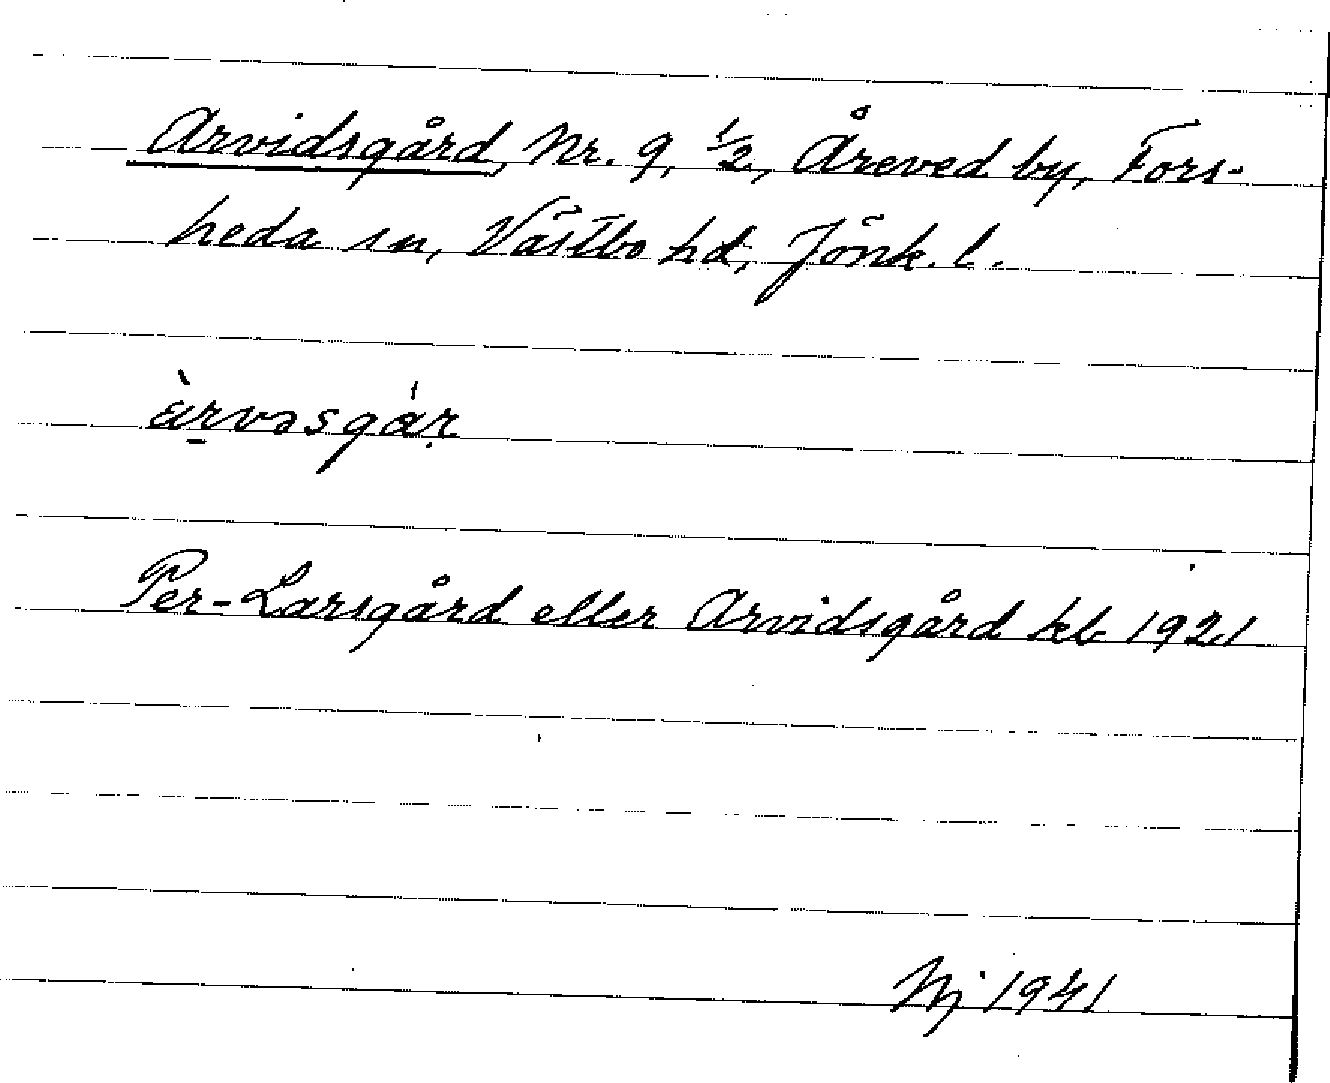 Arvidsgård, Nr. 9, 1/2, Åreved by, Fors-
heda sn, Västbo hd, Jönk. l.
Per-Larsgård eller Arvidsgård kb 1921
Nj 1941